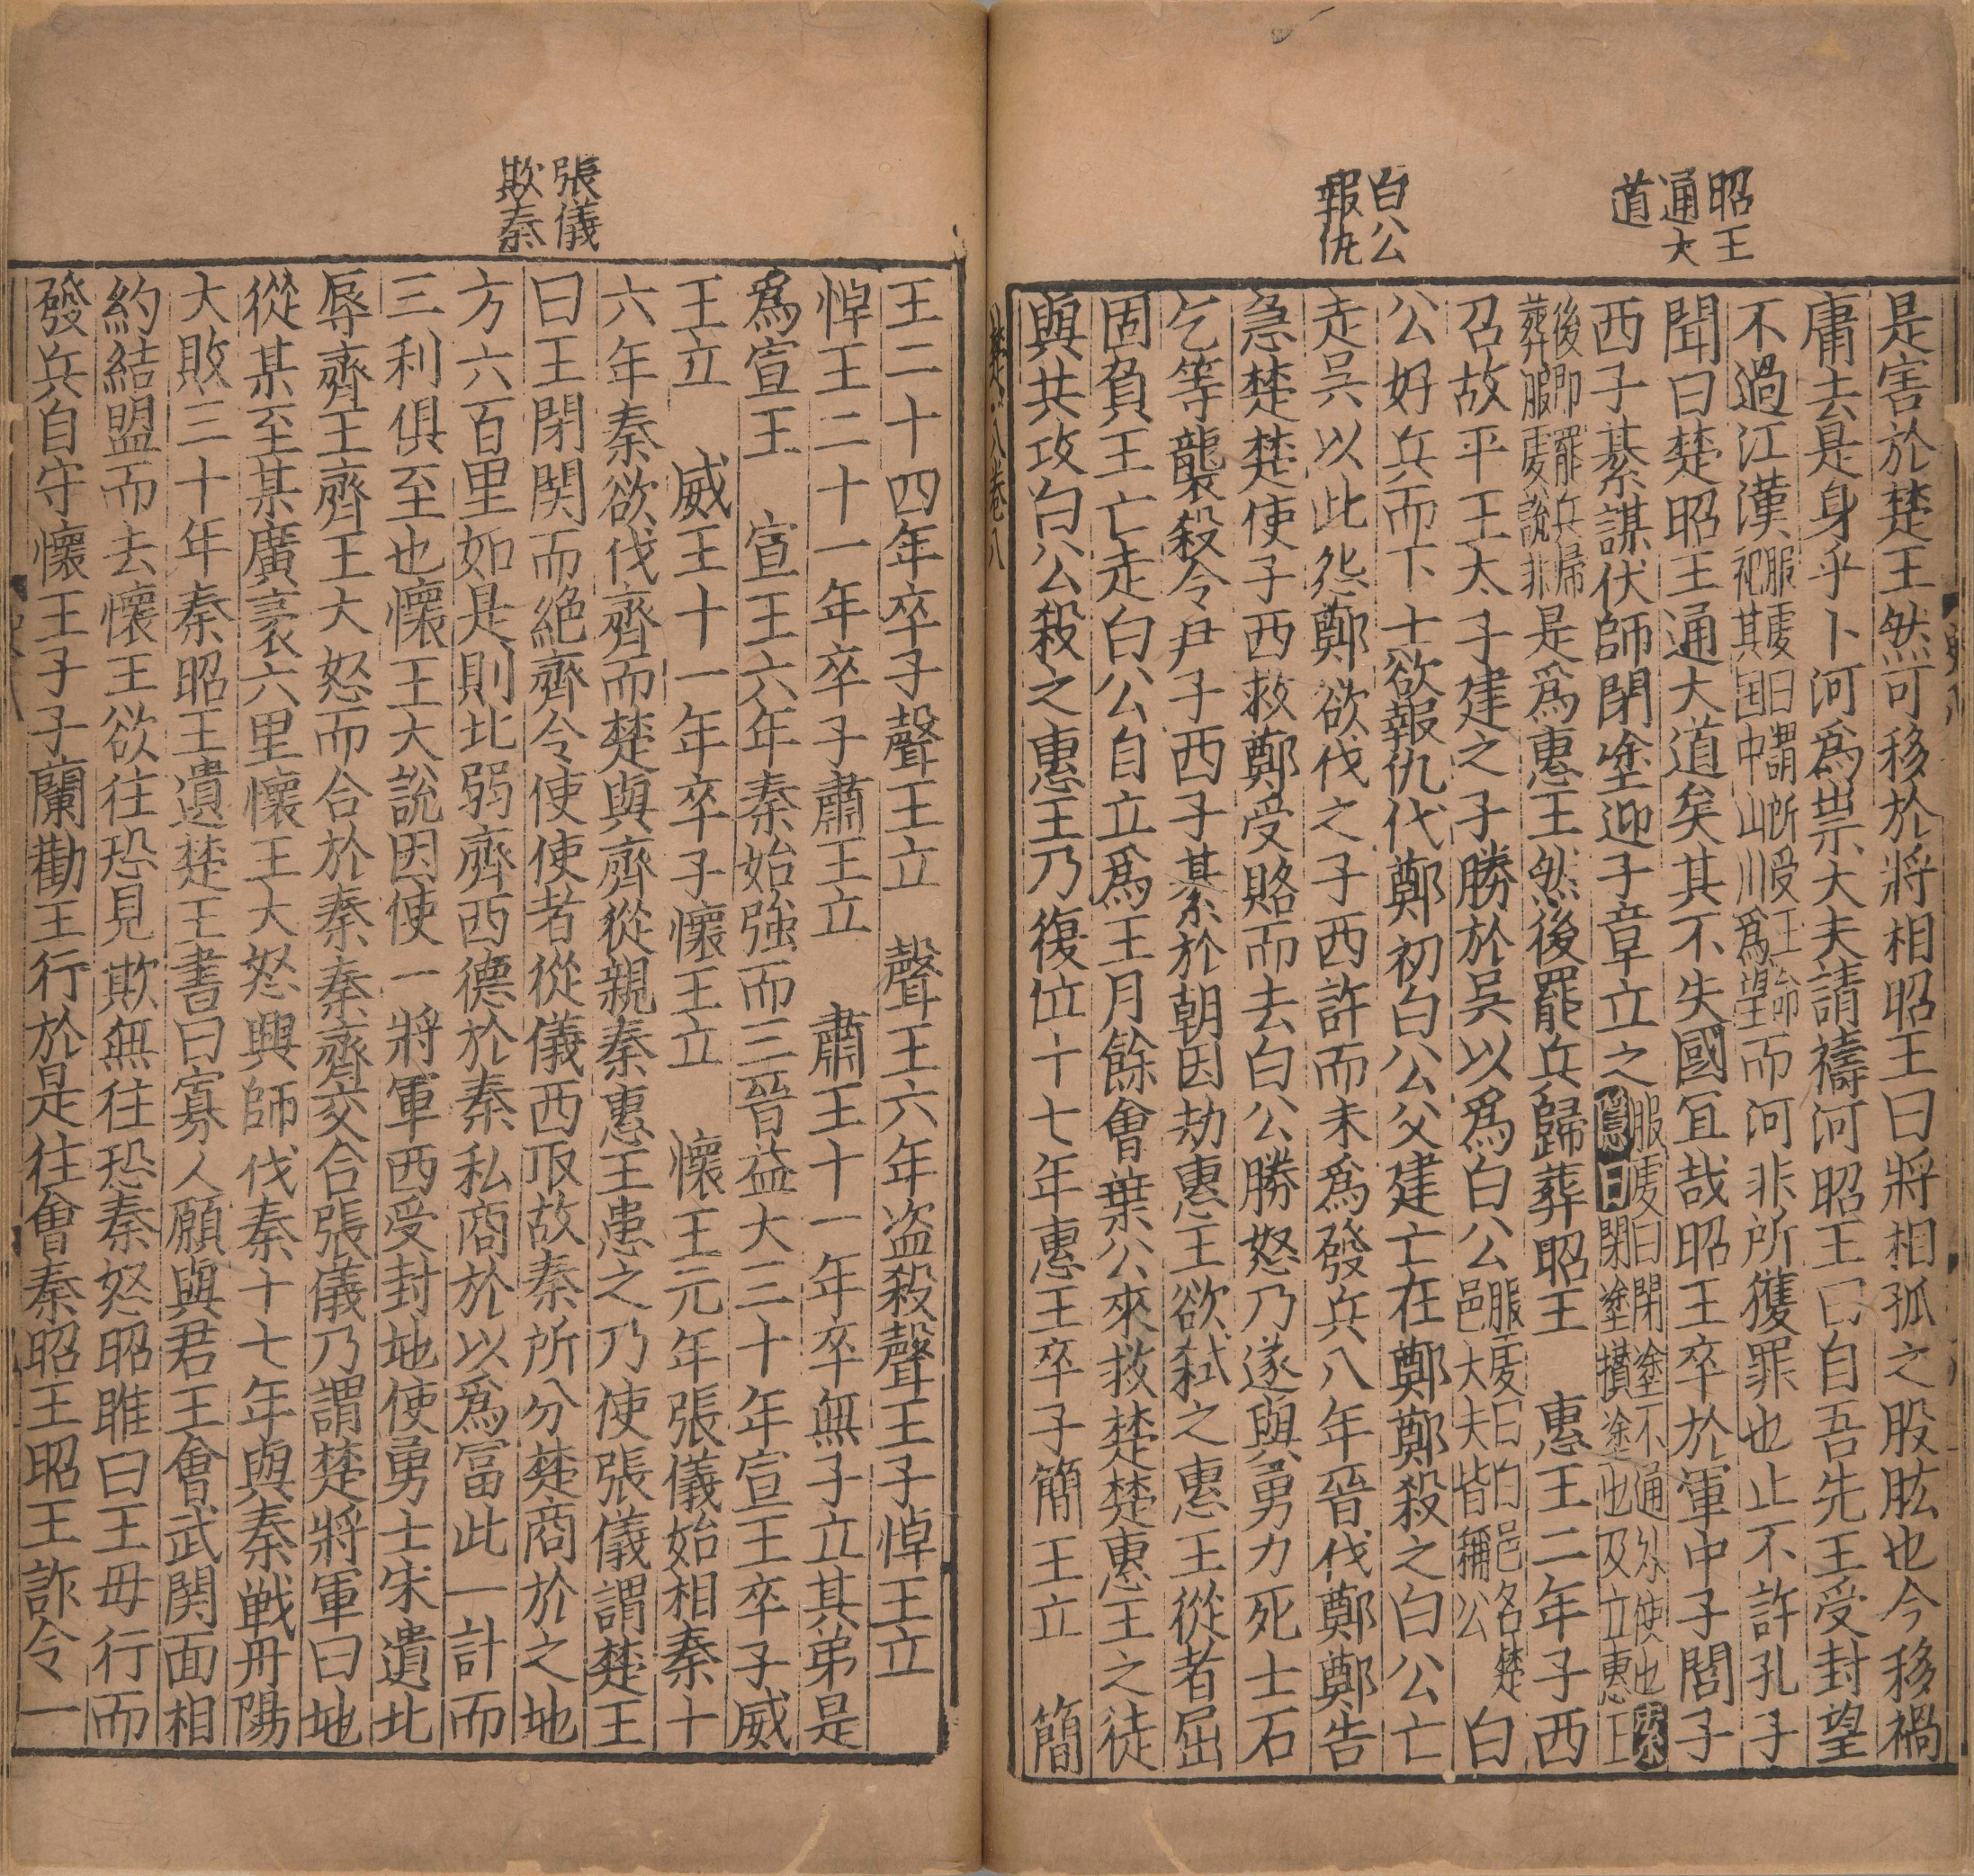 昭王
通大
道
白公
報仇
是害於楚王然可移於將相昭王曰將相孤之股肱也今移禍
庸去是身乎卜河爲祟大夫請禱河昭王曰自吾先王受封望
不過江漢服虔曰謂所受王命祀其国中山川爲望而河非所獲罪也止不許孔子
聞曰楚昭王通大道矣其不失國冝哉昭王卒於軍中子閭子
西子綦謀伏師閉塗迎子章立之服虔曰閉塗不通外使也索隱曰閉塗攢塗也及立惠王
後即罷兵歸葬服虔說非是爲惠王然後罷兵歸葬昭王　惠王二年子西
召故平王太子建之子勝於吳以爲白公服虔曰白邑名楚邑大夫皆稱公　白
公好兵而下士欲報仇代鄭初白公父建亡在鄭鄭殺之白公亡
走吳以此怨鄭欲伐之子西許而未爲發兵八年晉伐鄭鄭告
急楚楚使子西救鄭受賂而去白公勝怒乃遂與勇力死士石
乞等襲殺令尹子西子綦於朝因劫惠王欲弒之惠王從者屈
固負王亡走白公自立爲王月餘會葉公來救楚楚惠王之徒
與共攻白公殺之惠王乃復位十七年惠王卒子簡王立　簡
張儀
欺秦
王二十四年卒子聲王立　聲王六年盗殺聲王子悼王立
悼王二十一年卒子肅王立　肅王十一年卒無子立其弟是
爲宣王　宣王六年秦始強而三晉益大三十年宣王卒子威
王立　威王十一年卒子懷王立　懷王元年張儀始相秦十
六年秦欲伐齊而楚與齊從親秦惠王患之乃使張儀謂楚王
曰王閉関而絕齊令使使者從儀西取故秦所分楚商於之地
方六百里如是則北弱齊西德於秦私商於以爲富此一計而
三利俱至也懷王大說因使一將軍西受封地使勇士宋遺北
辱齊王齊王大怒而合於秦秦齊交合張儀乃謂楚將軍曰地
從某至某廣袤六里懷王大怒興師伐秦十七年與秦戰丹陽
大敗三十年秦昭王遺楚王書曰寡人願與君王會武関面相
約結盟而去懷王欲往恐見欺無往恐秦怒昭雎曰王毋行而
發兵自守懷王子子蘭勸王行於是往會秦昭王昭王詐令一